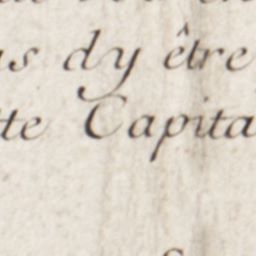 dy être
tte Capita